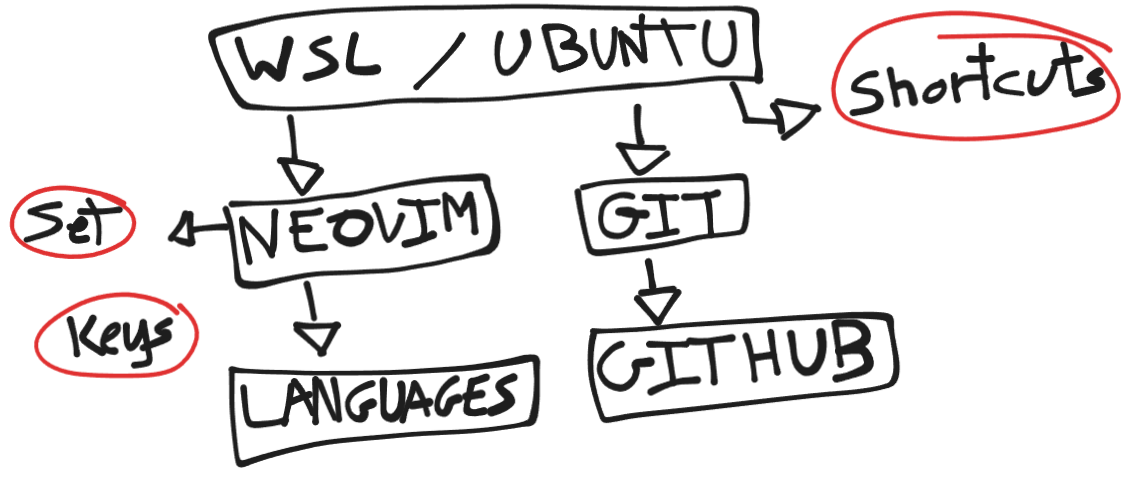 WSL / UBUNTU
Shortcuts
Set
NEOVIM
GIT
Keys
LANGUAGES
GITHUB